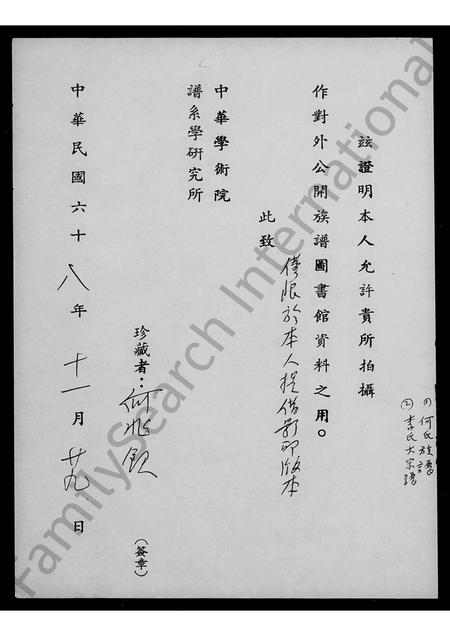 (1)何氏族譜
(2)李氏大宗譜
玆證明本人允許貴所拍攝
作對外公開族譜圖書館資料之用。
僅限於本人提借影印版本
此致
中華學術院
譜系學研究所
珍藏者：何兆欽
(簽章)
中華民國六十八年十一月廿九日
FamilySearch International